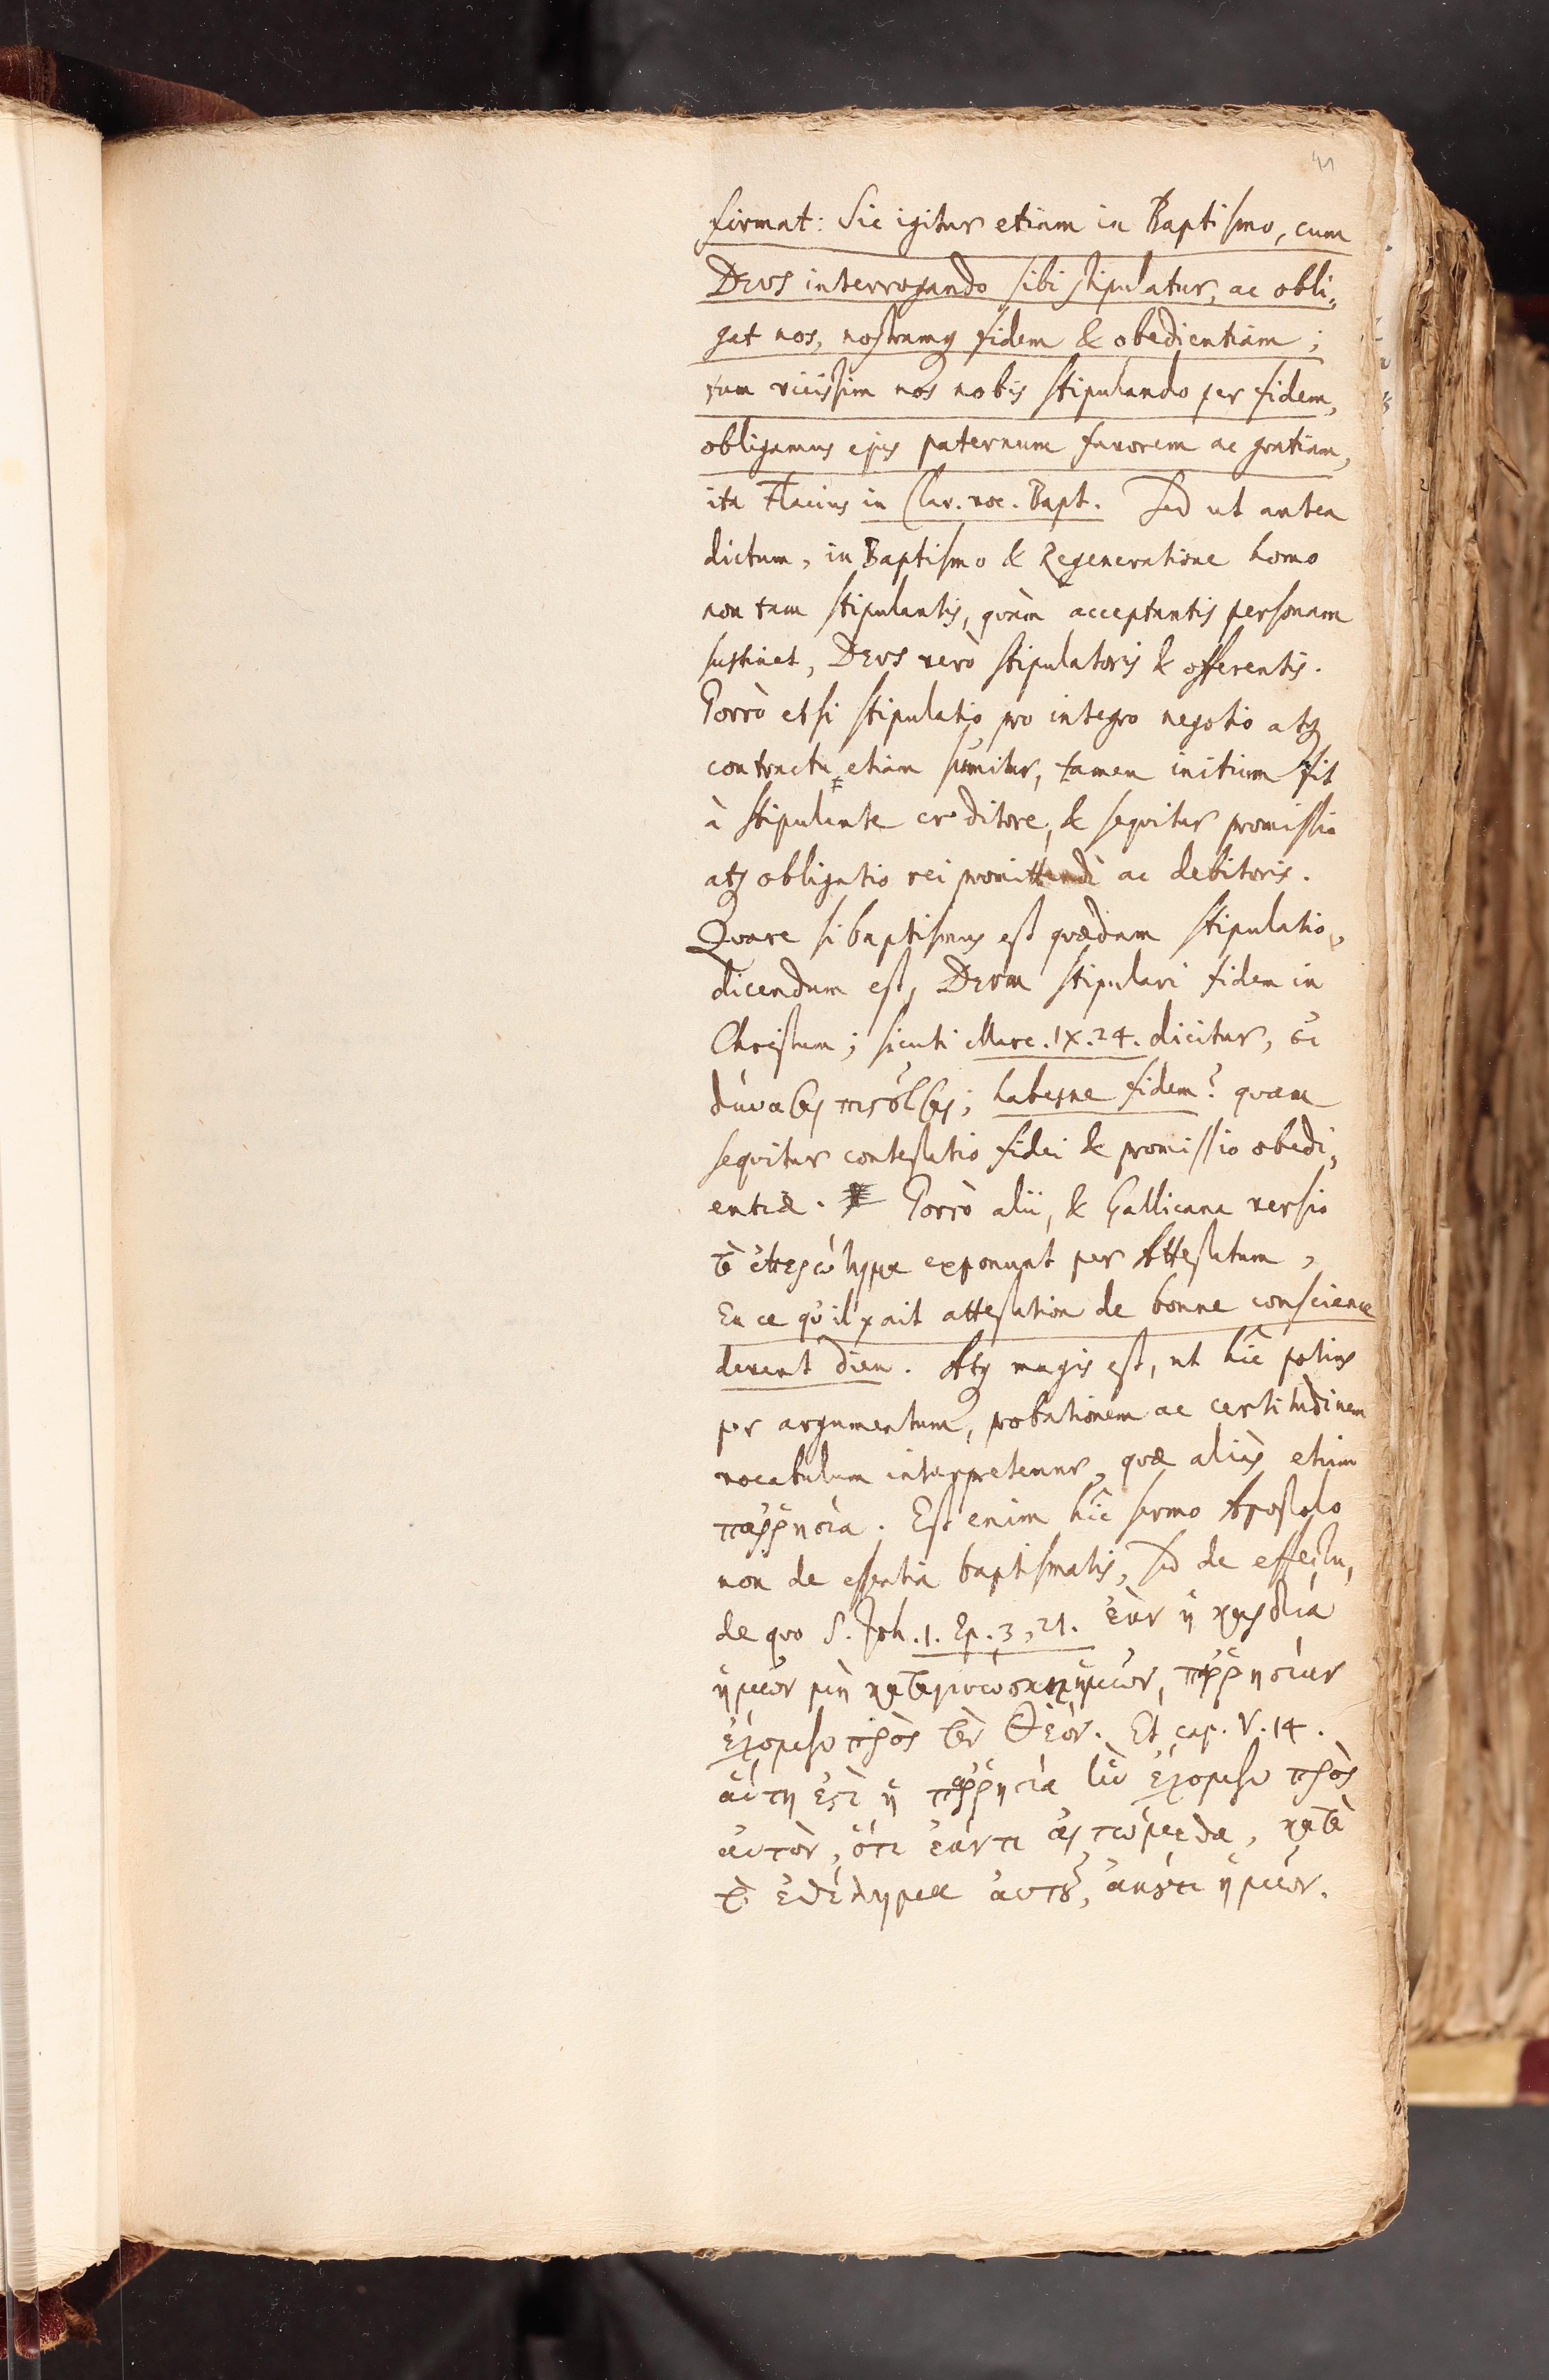 41
firmat: Sic igitur etiam in Baptismo, cum
DEUS interrogando sibi stipulatur, ac obli,
gat nos, nostramq fidem & obedientiam;
tum vicissim nos nobis stipulando per fidem,
obligamus ejus paternum favorem ac gratiam,
ita Flacius in Clav. voc. Bapt. Sed ut antea
dictum, in Baptismo & Regeneratione homo
non tam stipulantis, quàm acceptantis personam
sustinet, DEUS verò stipulatoris & offerentis.
Porrò etsi stipulatio pro integro negotio atq
contractu etiam sumitur, tamen initium fit
à stipulante creditore, & sequitur promissio
atq obligatio rei promittendi ac debitoris.
Quare si baptismus est quædam stipulatio,
dicendum est, DEUM stipulari fidem in
Christum; sicuti Marc. IX. 24. dicitur, εἰ
δύνασαι πιστεῦσαι; habesne fidem? quam
sequitur contestatio fidei & promissio obedi,
entiæ. Porrò alii, & Gallicana versio
τὸ ἐπερώτημα exponunt per Attestatum,
En ce qu'il y ait attestation de bonne conscience
devant Dieu. Atq magis est, ut hîc potius
per argumentum, probationem ac certitudinem
vocabulum interpretemur, quæ aliàs etiam
παῤῥησία. Est enim hîc sermo Apostolo
non de essentia baptismatis, sed de effectu,
de quo S. Joh. 1. Ep. 3, 21. ἐὰν ἡ καρδία
ἡμῶν μὴ καταγινώσκῃ ἡμῶν, παῤῥησίαν
ἔχομεν πρὸς τὸν Θεόν. Et cap. V. 14.
αὕτη ἐστὶ ἡ παῤῥησία ἣν ἔχομεν πρὸς
ἀυτὸν, ὅτι ἐάν τι αἰτώμεθα, κατὰ
τὸ ἐθέλημα ἀυτοῦ, ἀκούει ἡμῶν.